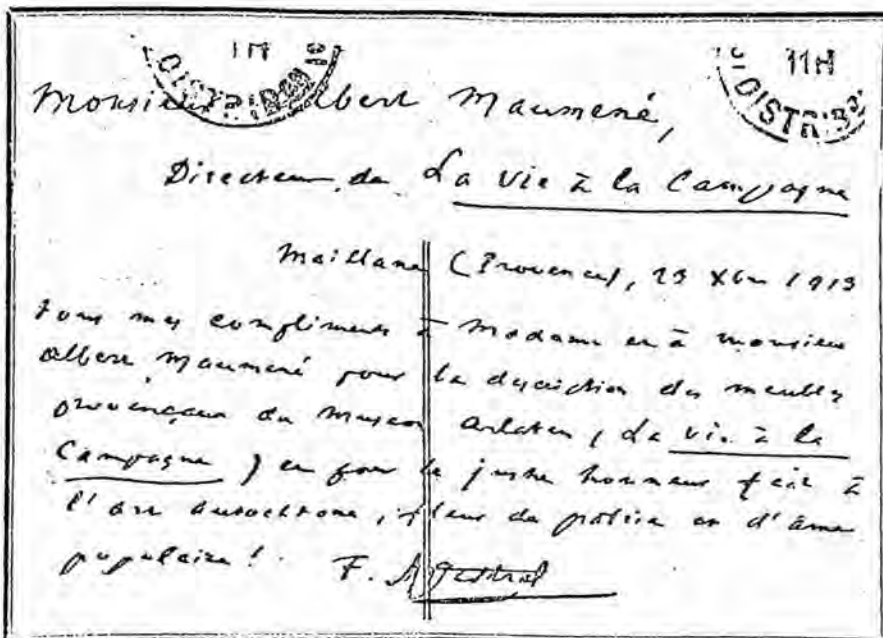 1H
DISTRIB
11H
DISTRIB
Monsieur Albert Maumené,
Directeur de La Vie à la Campagne
Maillane (Provence), 23 Xbre 1913
Tous mes compliments à Madame et à Monsieur
Albert Maumené pour la description des meubles
provençaux du Museon Arlaten, (La Vie à la
Campagne) et pour le juste honneur fait à
l'art autochtone, fleur de patrie et d'âme
populaire!
F. Mistral